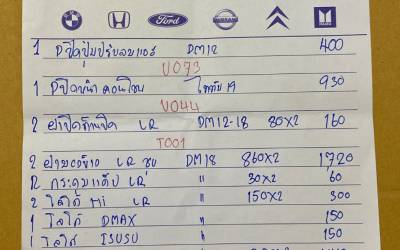 Ford NISSAN
1 ฝาปิดปุ่มปรับลมแอร์ DM12 400
U073
1 ฝาปิดหน้าคอนโซล ไททัน 19 930
U044
2 ฝาปิดก้านปัด LR DM12-18 80X2 160
T001
2 ฝามองข้าง LR ชุบ DM18 860X2 1720
12 กระดุมแค็ป LR " 30X2 60
2 โลโก้ Hi LR " 150X2 300
1 โลโก้ DMAX " 150
1 โลโก้ ISUSU " 150